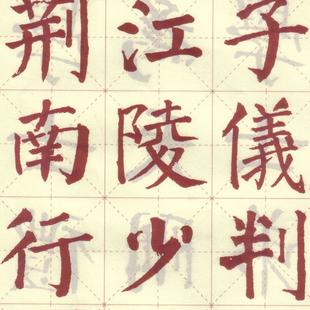 子儀判
江陵少
荆南行